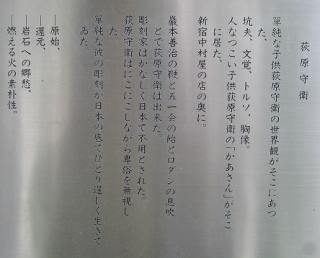 荻原守衛
単純な子供荻原守衛の世界観がそこにあつ
た、
坑夫、文覚、トルソ、胸像。
人なつこい子供荻原守衛の「かあさん」がそこ
に居た、
新宿中村屋の店の奥に。
巌本善治の鞭と五一会の飴とロダンの息吹
とで荻原守衛は出来た。
彫刻家はかなしく日本で不用とされた。
荻原守衛はにこにこしながら卑俗を無視し
た。
単純な彼の彫刻が日本の底でひとり逞しく生きて
ゐた。
―原始、
―還元、
―岩石への郷愁、
―燃える火の素朴性。